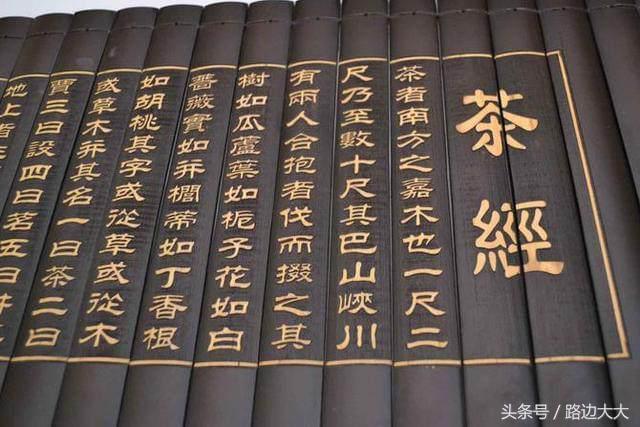 茶經
茶者南方之嘉木也一尺二
尺乃至數十尺其巴山峽川
有兩人合抱者伐而掇之其
樹如瓜蘆葉如梔子花如白
薔薇實如并櫚蒂如丁香根
如胡桃其字或從草或從木
或草木并其名一曰茶二曰
賈三曰設四曰茗五曰
地上者
头条号 / 路边大大